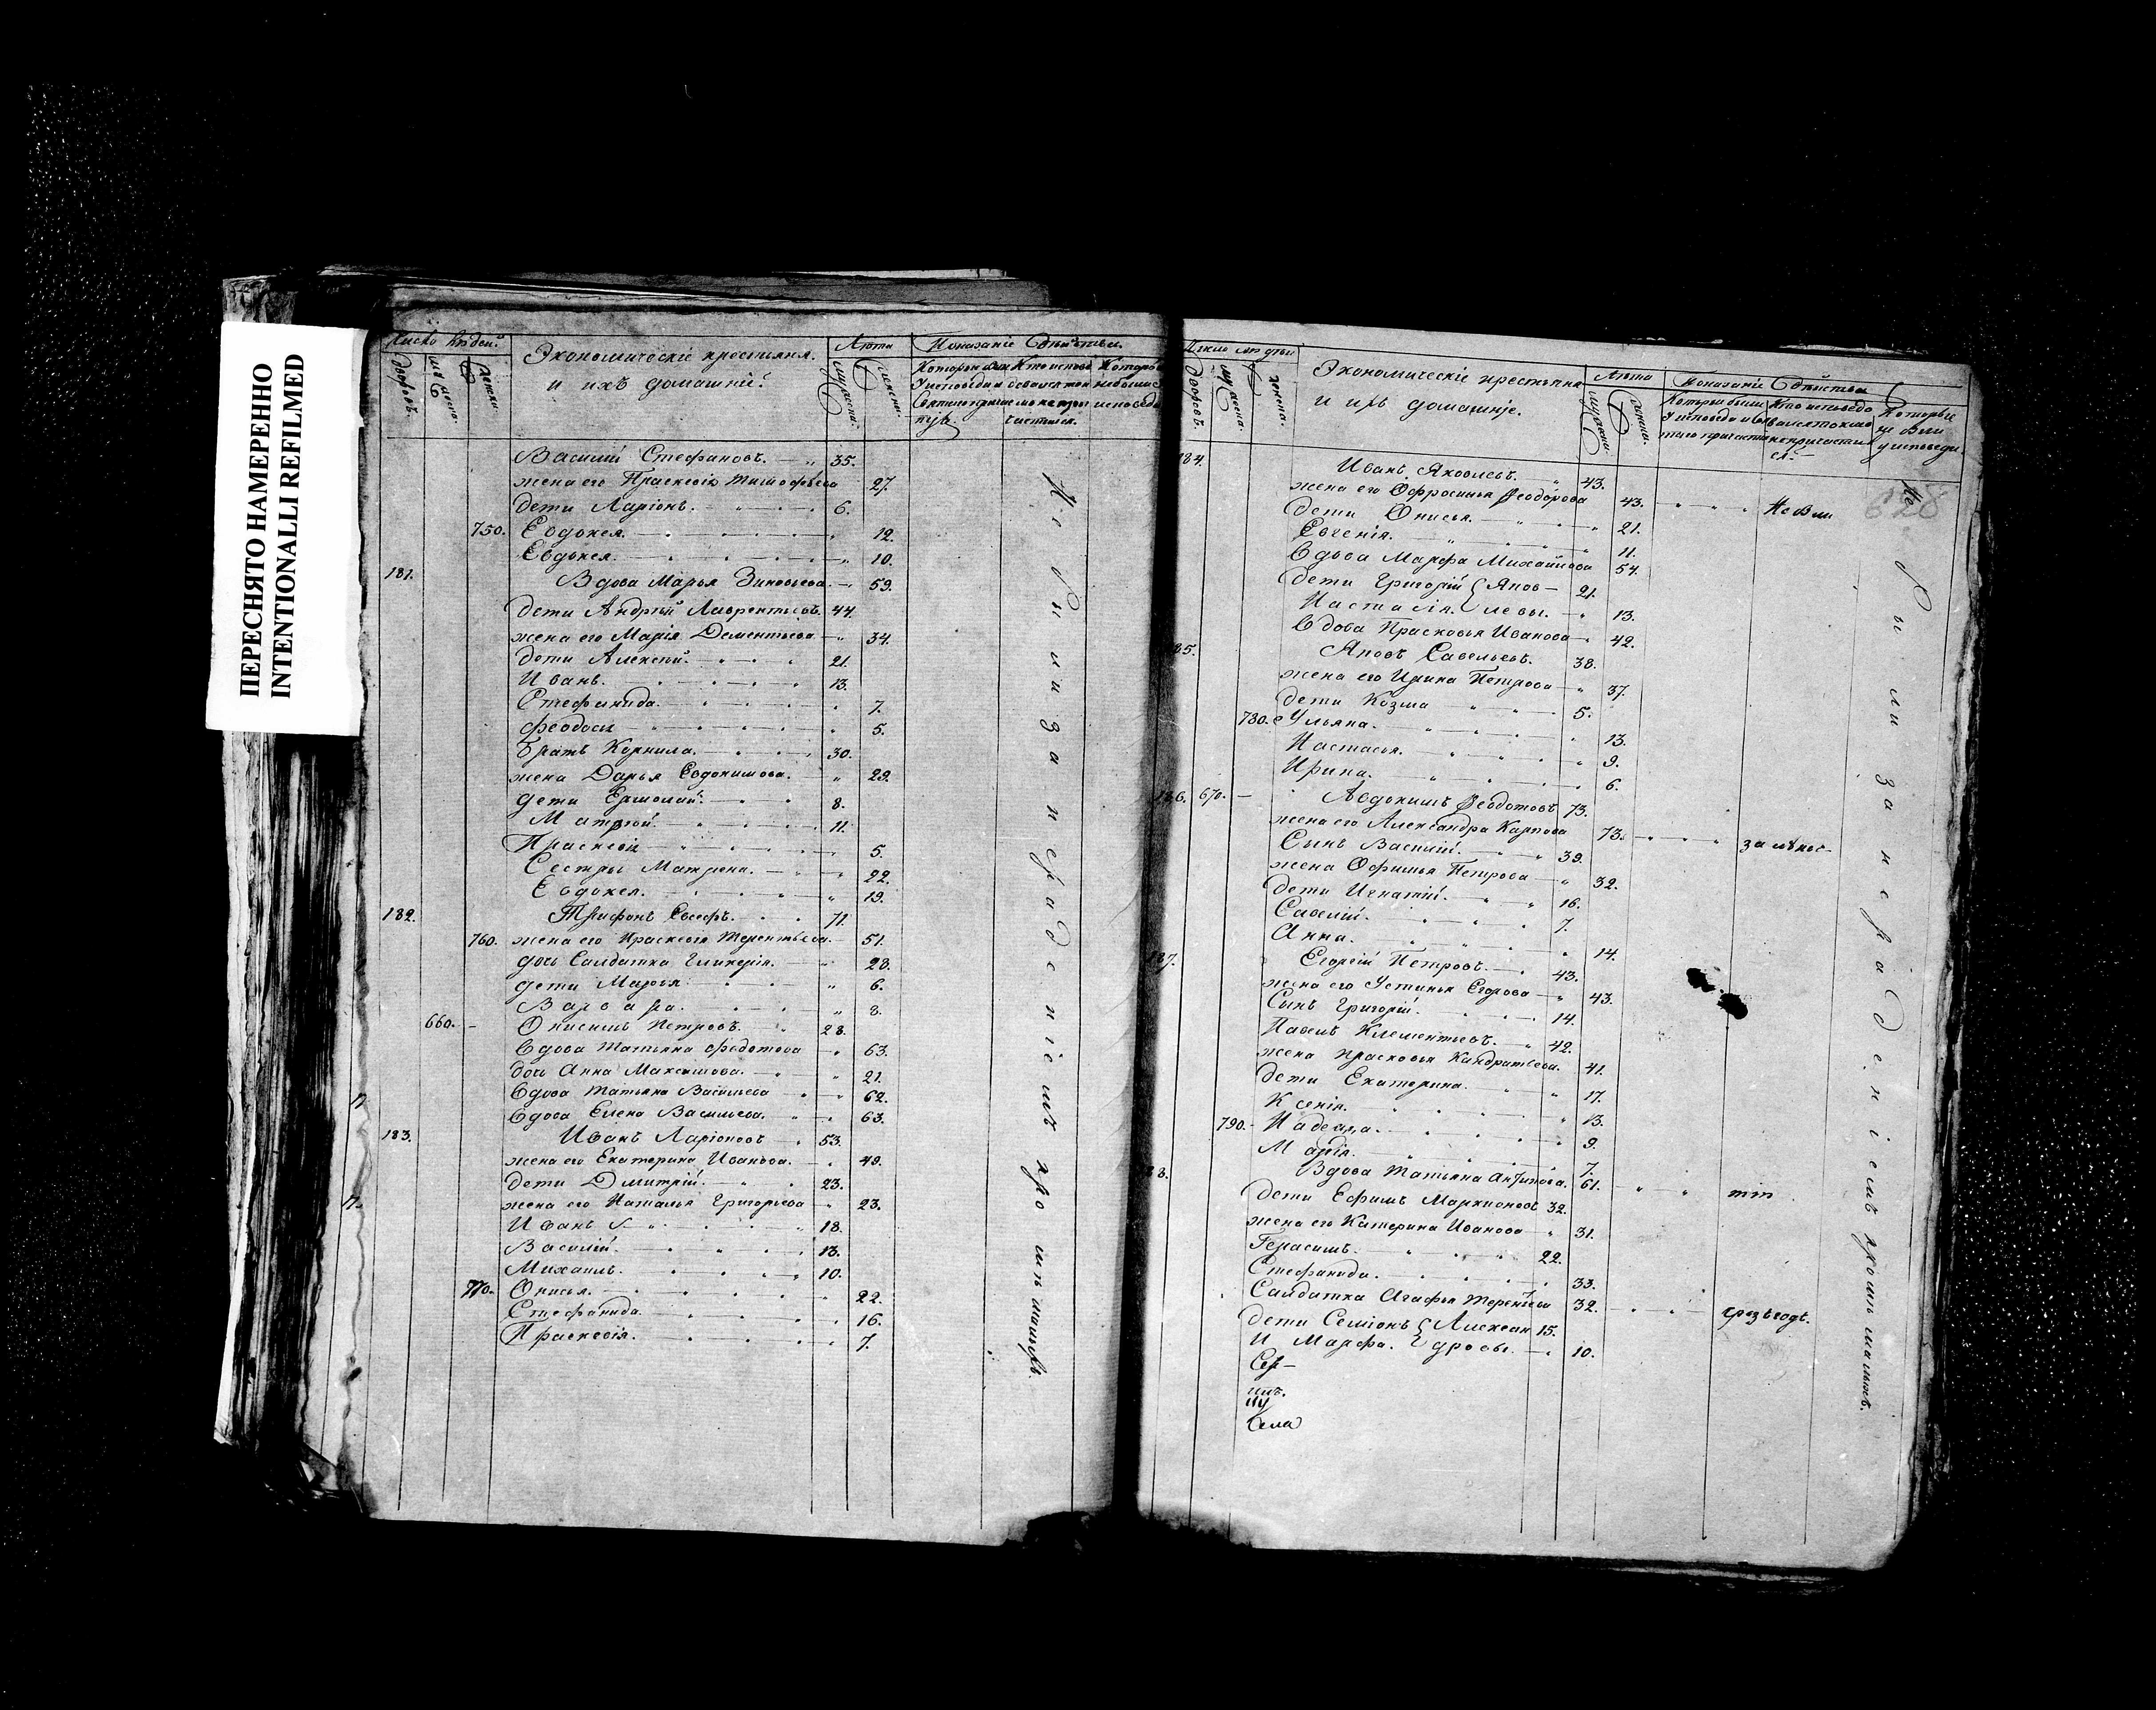 ПЕРЕСНЯТО НАМЕРЕННО
INTENTIONALLI REFILMED
Число людей
Экономическіе крестьяня.
и ихъ домашніе.
Лѣта
Показаніе
дворовъ.
Василій Стефановъ. 35.
жена его Праскевія Тимофѣева 27.
дети Ларіонъ. 6.
750. Евдокея. 12.
Евдокея. 10.
181. Вдова Марья Зиновьева. 59.
дети Андрей Лаврентьевъ. 44.
жена его Марія Дементьева 34.
дети Алексей. 21.
Иванъ. 13.
Стефанида. 7.
феодосья 5.
братъ Корнила. 30.
жена Дарья Евдокимова. 29.
дети Ермолай. 8.
Матфей. 11.
Праскевія 5.
Сестры Матрена. 22.
Евдокея. 19.
182. Трифонъ 71.
760. жена его Праскевія Терентьева. 51.
дочь Салдатка Гликерія. 28.
дети Марья 6.
Варвара. 8.
660. Онисимъ Петровъ. 28.
Вдова Татьяна Федотова 63.
дочь Анна Максимова. 21.
Вдова Татьяна Васильева 62.
Вдова Елена Васильева. 63.
183. Иванъ Ларіоновъ 53.
жена его Екатерина Иванова. 49.
дети Дмитрій. 23.
жена его Наталья Григорьева 23.
Иванъ 18.
Василій. 13.
Михаилъ. 10.
770. Онисья. 22.
Стефанида. 16.
Праскевія. 7.
Не были за нерадениемъ кроме малыхъ
Экономическіе крестьяня
и ихъ домашніе.
Лѣта
Показаніе
184. Иванъ Яковлевъ. 43.
жена его Офросинья Феодорова 43. Не были
дети Онисья. 21.
Евгенія. 11.
Вдова Марфа Михайлова 54.
дети Григорій { Яков- 21.
Настасія. { левы. 13.
Вдова Прасковья Иванова 42.
85. Яковъ Савельевъ. 38.
жена его Ирина Петрова 37.
дети Козма 5.
780. Ульяна. 13.
Настасья. 9.
Ирина. 6.
186. 670. Авдокимъ Феодотовъ 73.
жена его Александра Карпова 73.
Сынъ Василій. 39.
жена Офимья Петрова 32.
дети Игнатій. 16.
Савелій. 7.
Анна. 14.
187. Георгій Петровъ. 43.
жена его Устинья Егорова 43.
Сынъ Григорій. 14.
Павелъ Клементьевъ. 42.
жена Прасковья Кандратьева. 41.
дети Екатерина. 17.
Ксенія. 13.
790. Надежда. 9.
Марія. 7.
8. Вдова Татьяна Антипова. 61.
дети Ефимъ Маркионовъ 32.
жена его Катерина Иванова 31.
Герасимъ. 22.
Стефанида. 33.
Салдатка Агафья Терентева 32.
дети Семіонъ { Алексан 15.
и Марфа. { дровы. 10.
Не были за нераденіемъ кроме малыхъ.